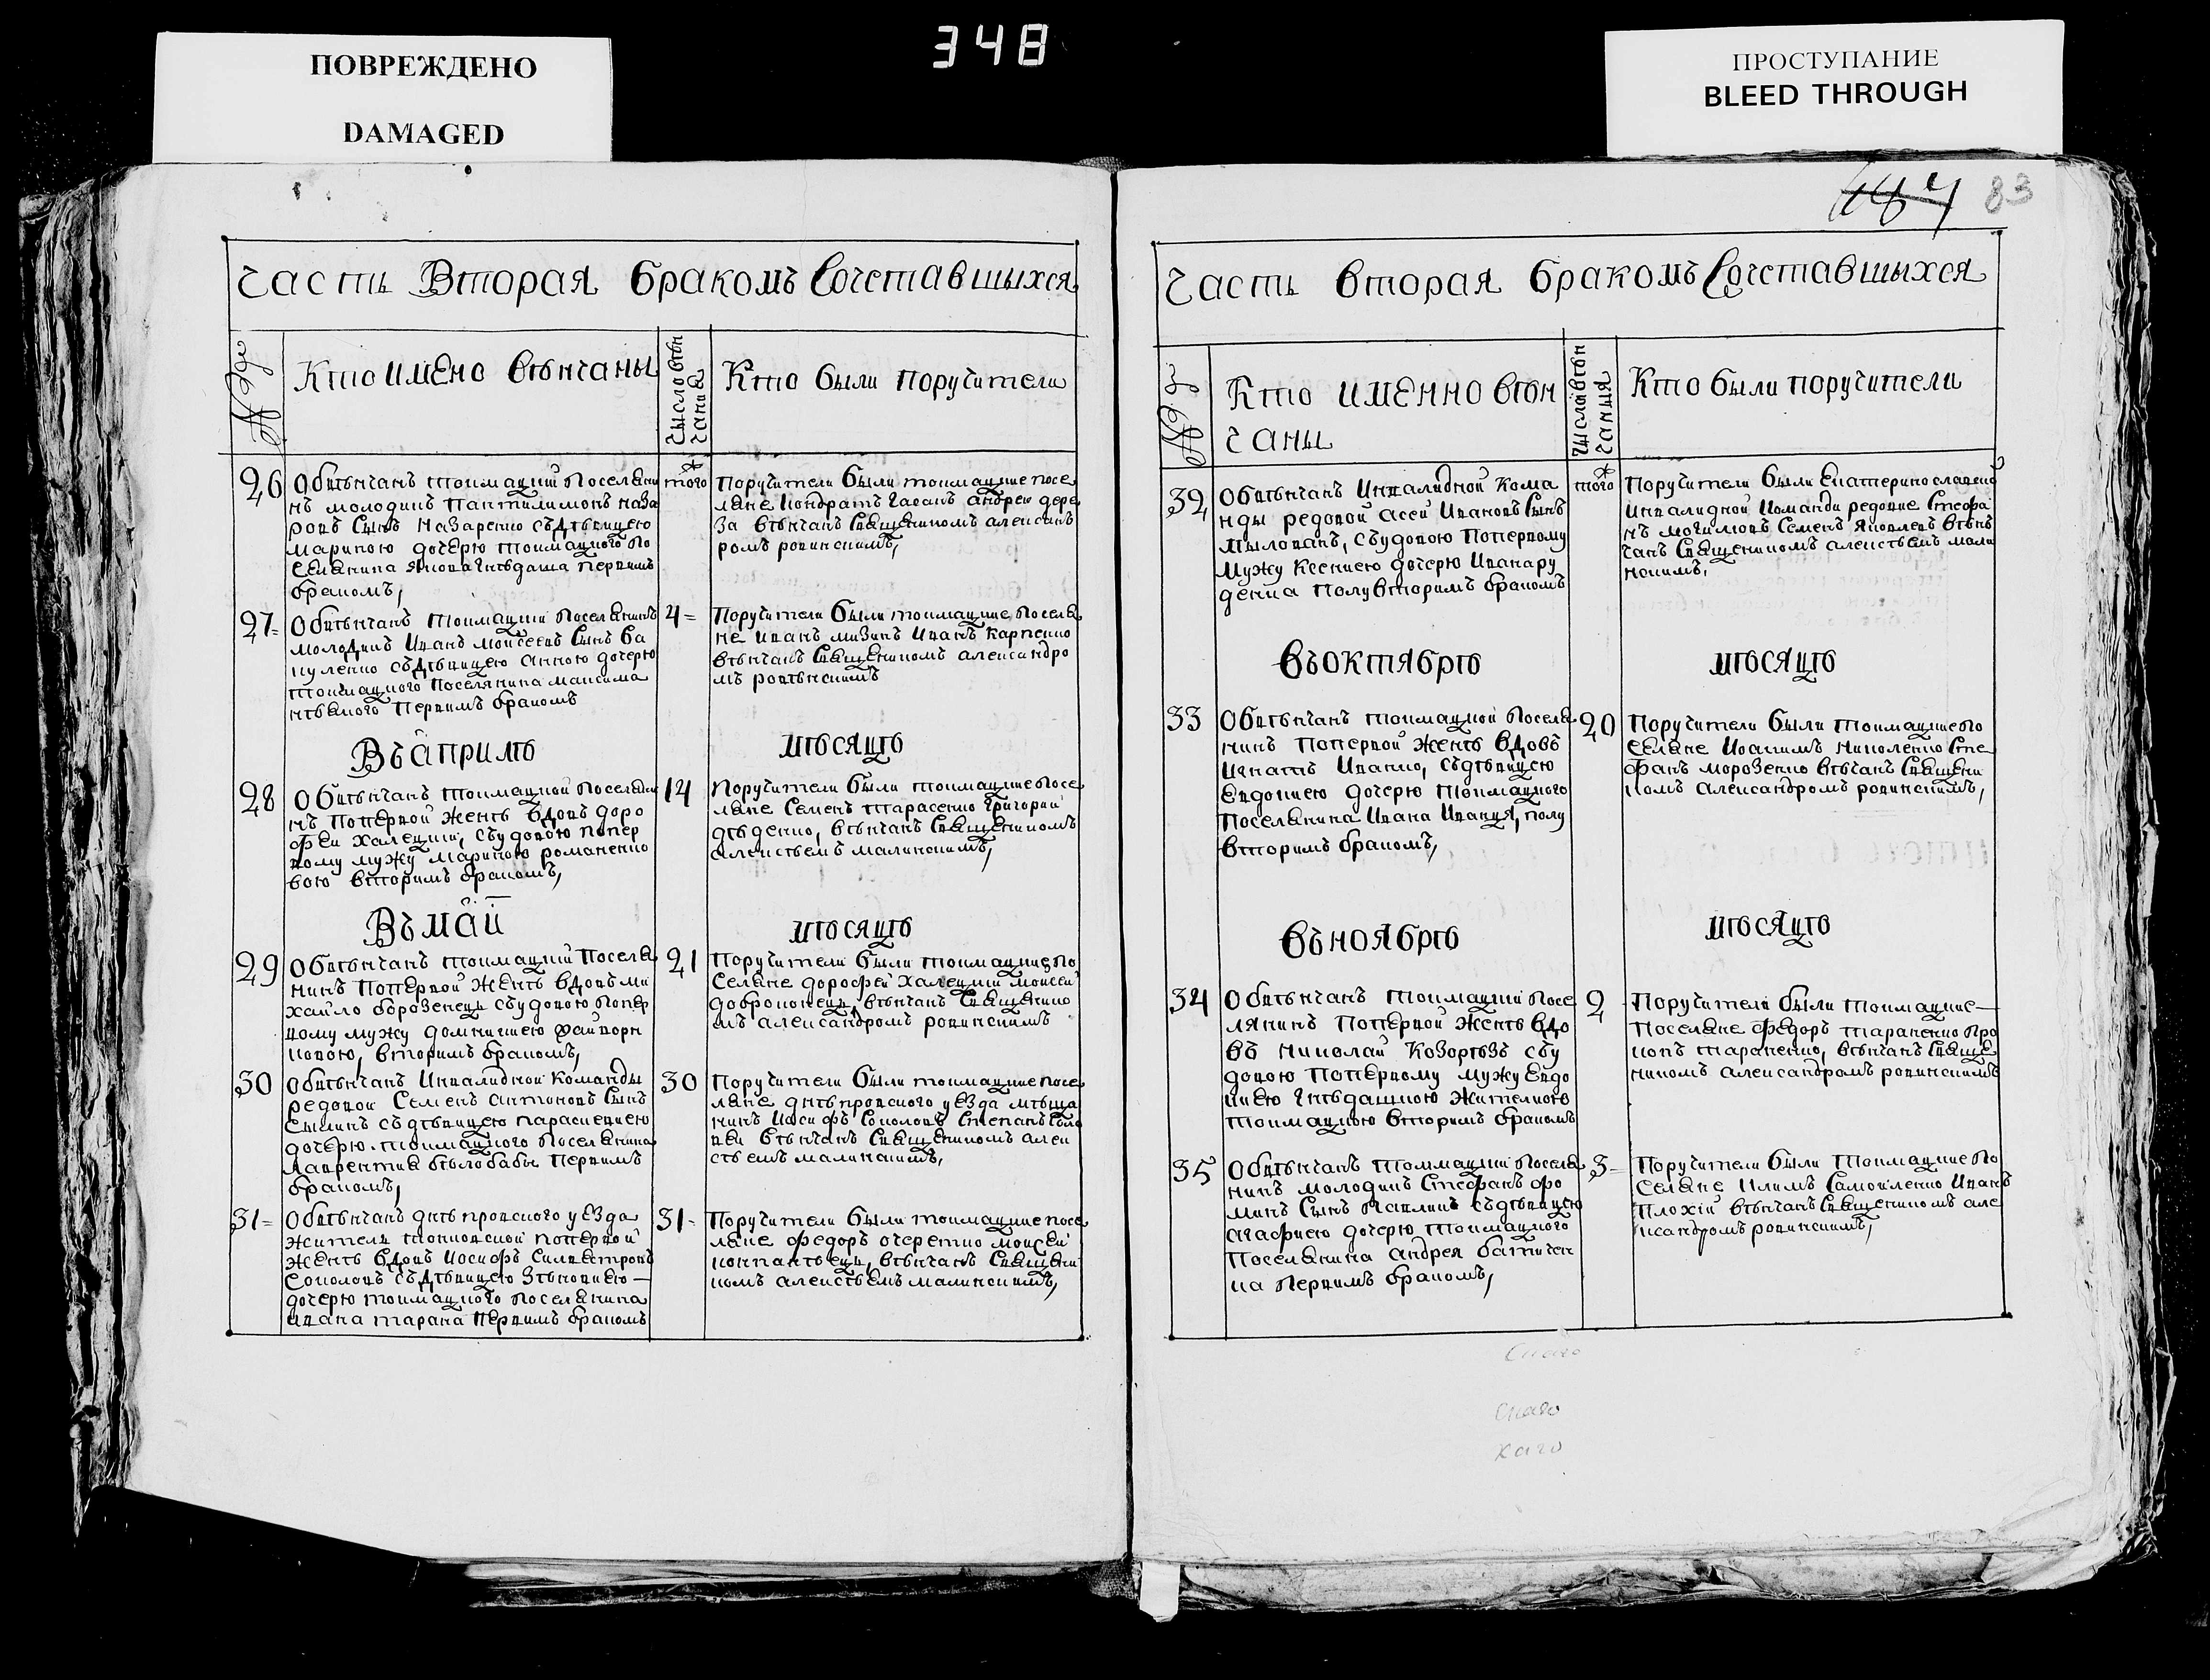 348
ПОВРЕЖДЕНО
DAMAGED
ПРОСТУПАНИЕ
BLEED THROUGH
83
Часть Вторая Бракомъ Сочетавшыхся
Кто имено вѣнчаны
Чысло вѣн
чания
Кто были поручители
26
Обвѣнчанъ токмацкий поселяни
нъ молодикъ Пантилимонъ наза
ровъ сынъ Назаренко съдѣвицею
Мариною дочерю токмацкого по
селянина Якова Гнѣдаша первимъ
бракомъ,
того ж
Поручители были токмацкие посе
ляне Кондратъ Гасанъ андрей дере
за вѣнчанъ священикомъ алексанъ
ромъ ровинскимъ,
27=
Обвѣнчанъ токмацкий поселянинъ
молодикъ Иванъ Моисеевъ сынъ Ва
куленко съдѣвицею Анною дочерю
токмацкого поселянина Максима
нѣмого первимъ бракомъ
4=
Поручители были токмацкие поселя
не иванъ мизинъ иванъ карпенко
вѣнчанъ священикомъ александро
мъ ровѣнскимъ
Въ априлѣ
мѣсяцѣ
28
Обвѣнчанъ токмацкой поселяни
нъ попервой женѣ вдовъ доро
фей халецкий, съудовою попер
вому мужу Мариною романенко
вою вторимъ бракомъ,
14
Поручители были токмацкие посе
ляне Семенъ Тарасенко григорий
дѣденко, вѣнчанъ священикомъ
алексѣемъ малинскимъ,
Въ май
мѣсяцѣ
29
Обвѣнчанъ токмацкий поселя
нинъ попервой женѣ вдовъ ми
хайло борозенець съудовою попер
вому мужу домникиею хайворн
ковою, вторимъ бракомъ,
21
Поручители были токмацкие по
селяне дорофей халецкий моисей
доброконець, вѣнчанъ священико
мъ александромъ ровинскимъ
30
Обвѣнчанъ Инвалидной команды
редовой Семенъ антоновъ сынъ
съдѣвицею параскевиею
дочерю токмацкого поселянина
лаврентия бѣлобабы первимъ
бракомъ,
30
Поручители были токмацкие посе
ляне днѣпровского уезда мѣща
нинъ иосифъ соколовъ степанъ
вѣнчанъ священикомъ алек
сѣемъ малинскимъ,
31=
Обвѣнчанъ днѣпровского уезда
жителя попервой
женѣ вдовъ иосифъ силвестровъ
соколовъ съдѣвицею зѣновиею
дочерю токмацкого поселянина
ивана тарана первимъ бракомъ
31-
Поручители были токмацкие посе
ляне федоръ очеретко моисей
вѣнчанъ священи
комъ алексѣемъ малинскимъ,
Часть вторая Бракомъ Сочетавшыхся
Кто именно вѣн
чаны
Чысла вѣн
чаныя
Кто были поручители
32
Обвѣнчанъ Инвалидной кома
нды редовой асей ивановъ сынъ
мыловань, съудовою попервому
мужу ксениею дочерю ивана ру
денка полувторимъ бракомъ
того ж
Поручители были екатеринославской
инвалидной команди редовие стефа
нъ могиловъ семенъ яковлевъ вѣнъ
чанъ священикомъ алексѣемъ мали
нскимъ,
Въ октябрѣ
мѣсяцѣ
33
Обвѣнчанъ токмацкой поселя
нинъ попервой женѣ вдовъ
игнатъ ивапко, съдѣвицею
евдокиею дочерю токмацкого
поселянина ивана иванця, полу
вторимъ бракомъ,
20
Поручители были токмацкие по
селяне иоакимъ николенко сте
фанъ морозенко вѣнчанъ священи
комъ александромъ ровинскимъ,
Въ ноябрѣ
мѣсяцѣ
34
Обвѣнчанъ токмацкий посе
лянинъ попервой женѣ вдо
въ николай козорѣзъ съу
довою попервому мужу евдо
киею гнѣдашкою жителкою
токмацкою вторимъ бракомъ
2
Поручители были токмацкие
поселяне федоръ тараненко про
копъ тараненко, вѣнчанъ свяще
никомъ александромъ ровинскимъ
35
Обвѣнчанъ токмацкий поселя
нинъ молодикъ стефанъ фо
минъ сынъ павликъ съдѣвицею
агафиею дочерю токмацкого
поселянина андрея батичен
ка первимъ бракомъ,
3-
Поручители были токмацкие по
селяне климъ самойленко иванъ
плохий вѣнчанъ священикомъ але
ксандромъ ровинскимъ,